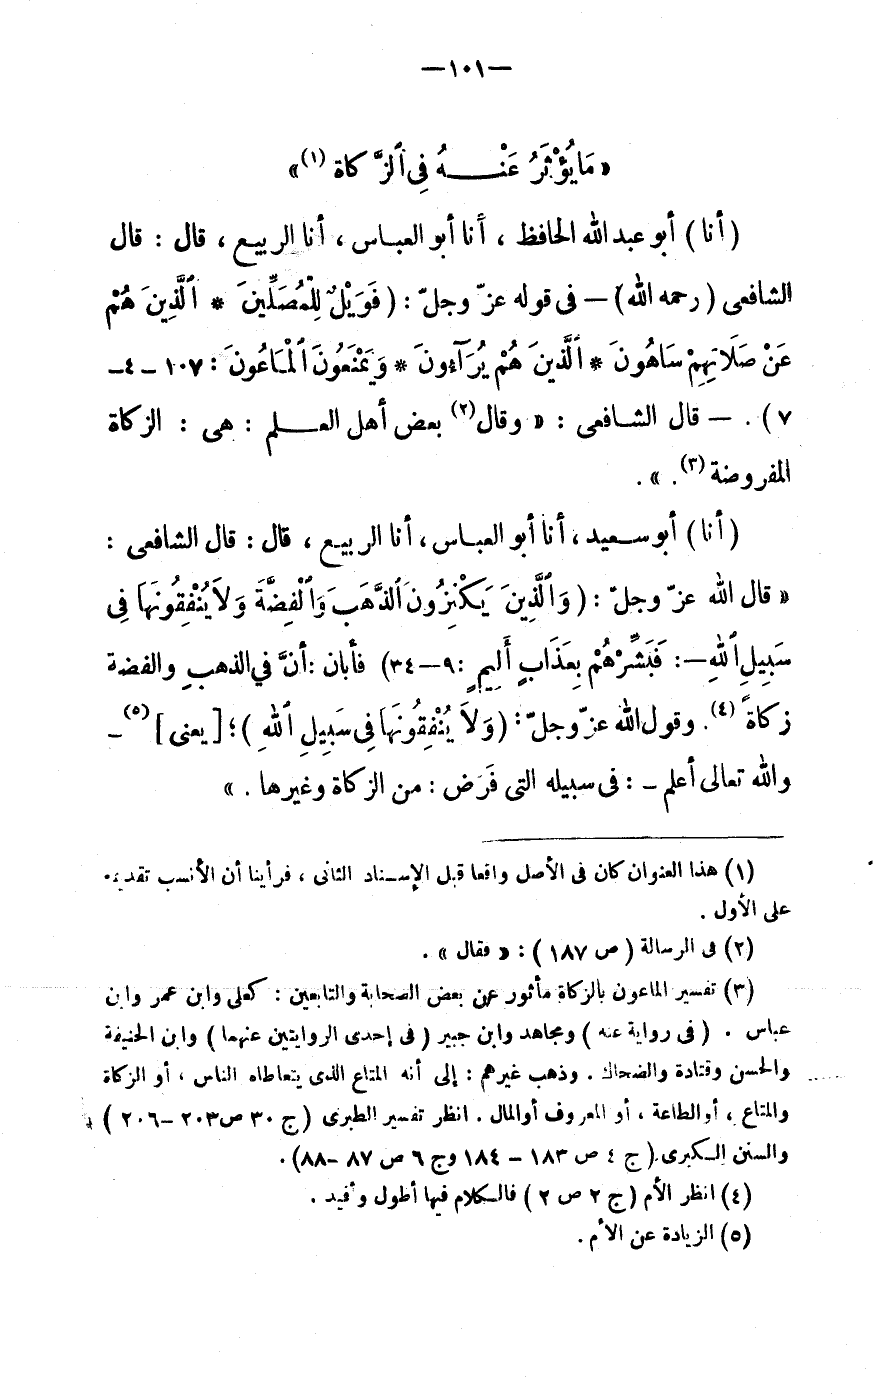 —١٠١—
« مَا يُؤْثَرُ عَنْـــهُ فِى ٱلزَّكاة (١) »
( أنا ) أبو عبد الله الحافظ ، أَنا أبو العبـاس ، أنا الربيع ، قال : قال
الشافعى ( رحمه الله ) — فى قوله عزّ وجلّ : ( فَوَيْلٌ لِلْمُصَلِّينَ * ٱلَّذِينَ هُمْ
عَنْ صَلَاتِهِمْ سَاهُونَ * ٱلَّذِينَ هُمْ يُرَآءونَ * وَيَمْنَعُونَ ٱلْمَاعُونَ : ١٠٧ – ٤–
٧ ) . — قال الشـافعى : « وقال(٢) بعض أهل العـــلم : هى : الزكاة
المفروضة (٣) . » .
( أنا ) أبو سـعيد ، أنا أبو العبـاس ، أنا الربيع ، قال : قال الشافعى :
« قال الله عزّ وجلّ : ( وَٱلَّذِينَ يَكْنِزُونَ ٱلذَّهَبَ وَٱلْفِضَّةَ وَلاَ يُنْفِقُونَهَا فِى
سَبِيلِ ٱللهِ —: فَبَشِّرْهُمْ بِعَذَابٍ أَلِيمٍ : ٩–٣٤ ) فأبان : أنَّ فى الذهبِ والفضة
زكاةً (٤) . وقول الله عزّ وجلّ : ( وَلاَ يُنْفِقُونَهَا فِى سَبِيلِ ٱللهِ ) ؛ [ يعنى ] (٥) –
والله تعالى أعلم – : فى سبيله التى فَرَض : من الزكاة وغيرها . »
(١) هذا العنوان كان فى الأصل واقعا قبل الإسـناد الثانى ، فرأينا أن الأنسب تقديمه
على الأول .
(٢) فى الرسالة ( ص ١٨٧ ) : « فقال » .
(٣) تفسير الماعون بالزكاة مأثور عن بعض الصحابة والتابعين : كعلى وابن عمر وابن
عباس . ( فى رواية عنه ) ومجاهد وابن جبير ( فى إحدى الروايتين عنهما ) وابن الحنيفة
والحسن وقتادة والضحاك . وذهب غيرهم : إلى أنه المتاع الذى يتعاطاه الناس ، أو الزكاة
والمتاع ، أو الطاعة ، أو المعروف أو المال . انظر تفسير الطبرى ( ج ٣٠ ص ٢٠٣ – ٢٠٦ )
والسنن الـكبرى ( ج ٤ ص ١٨٣ – ١٨٤ وج ٦ ص ٨٧ – ٨٨ ) .
(٤) انظر الأم ( ج ٢ ص ٢ ) فالـكلام فيها أطول وأفيد .
(٥) الزيادة عن الأم .